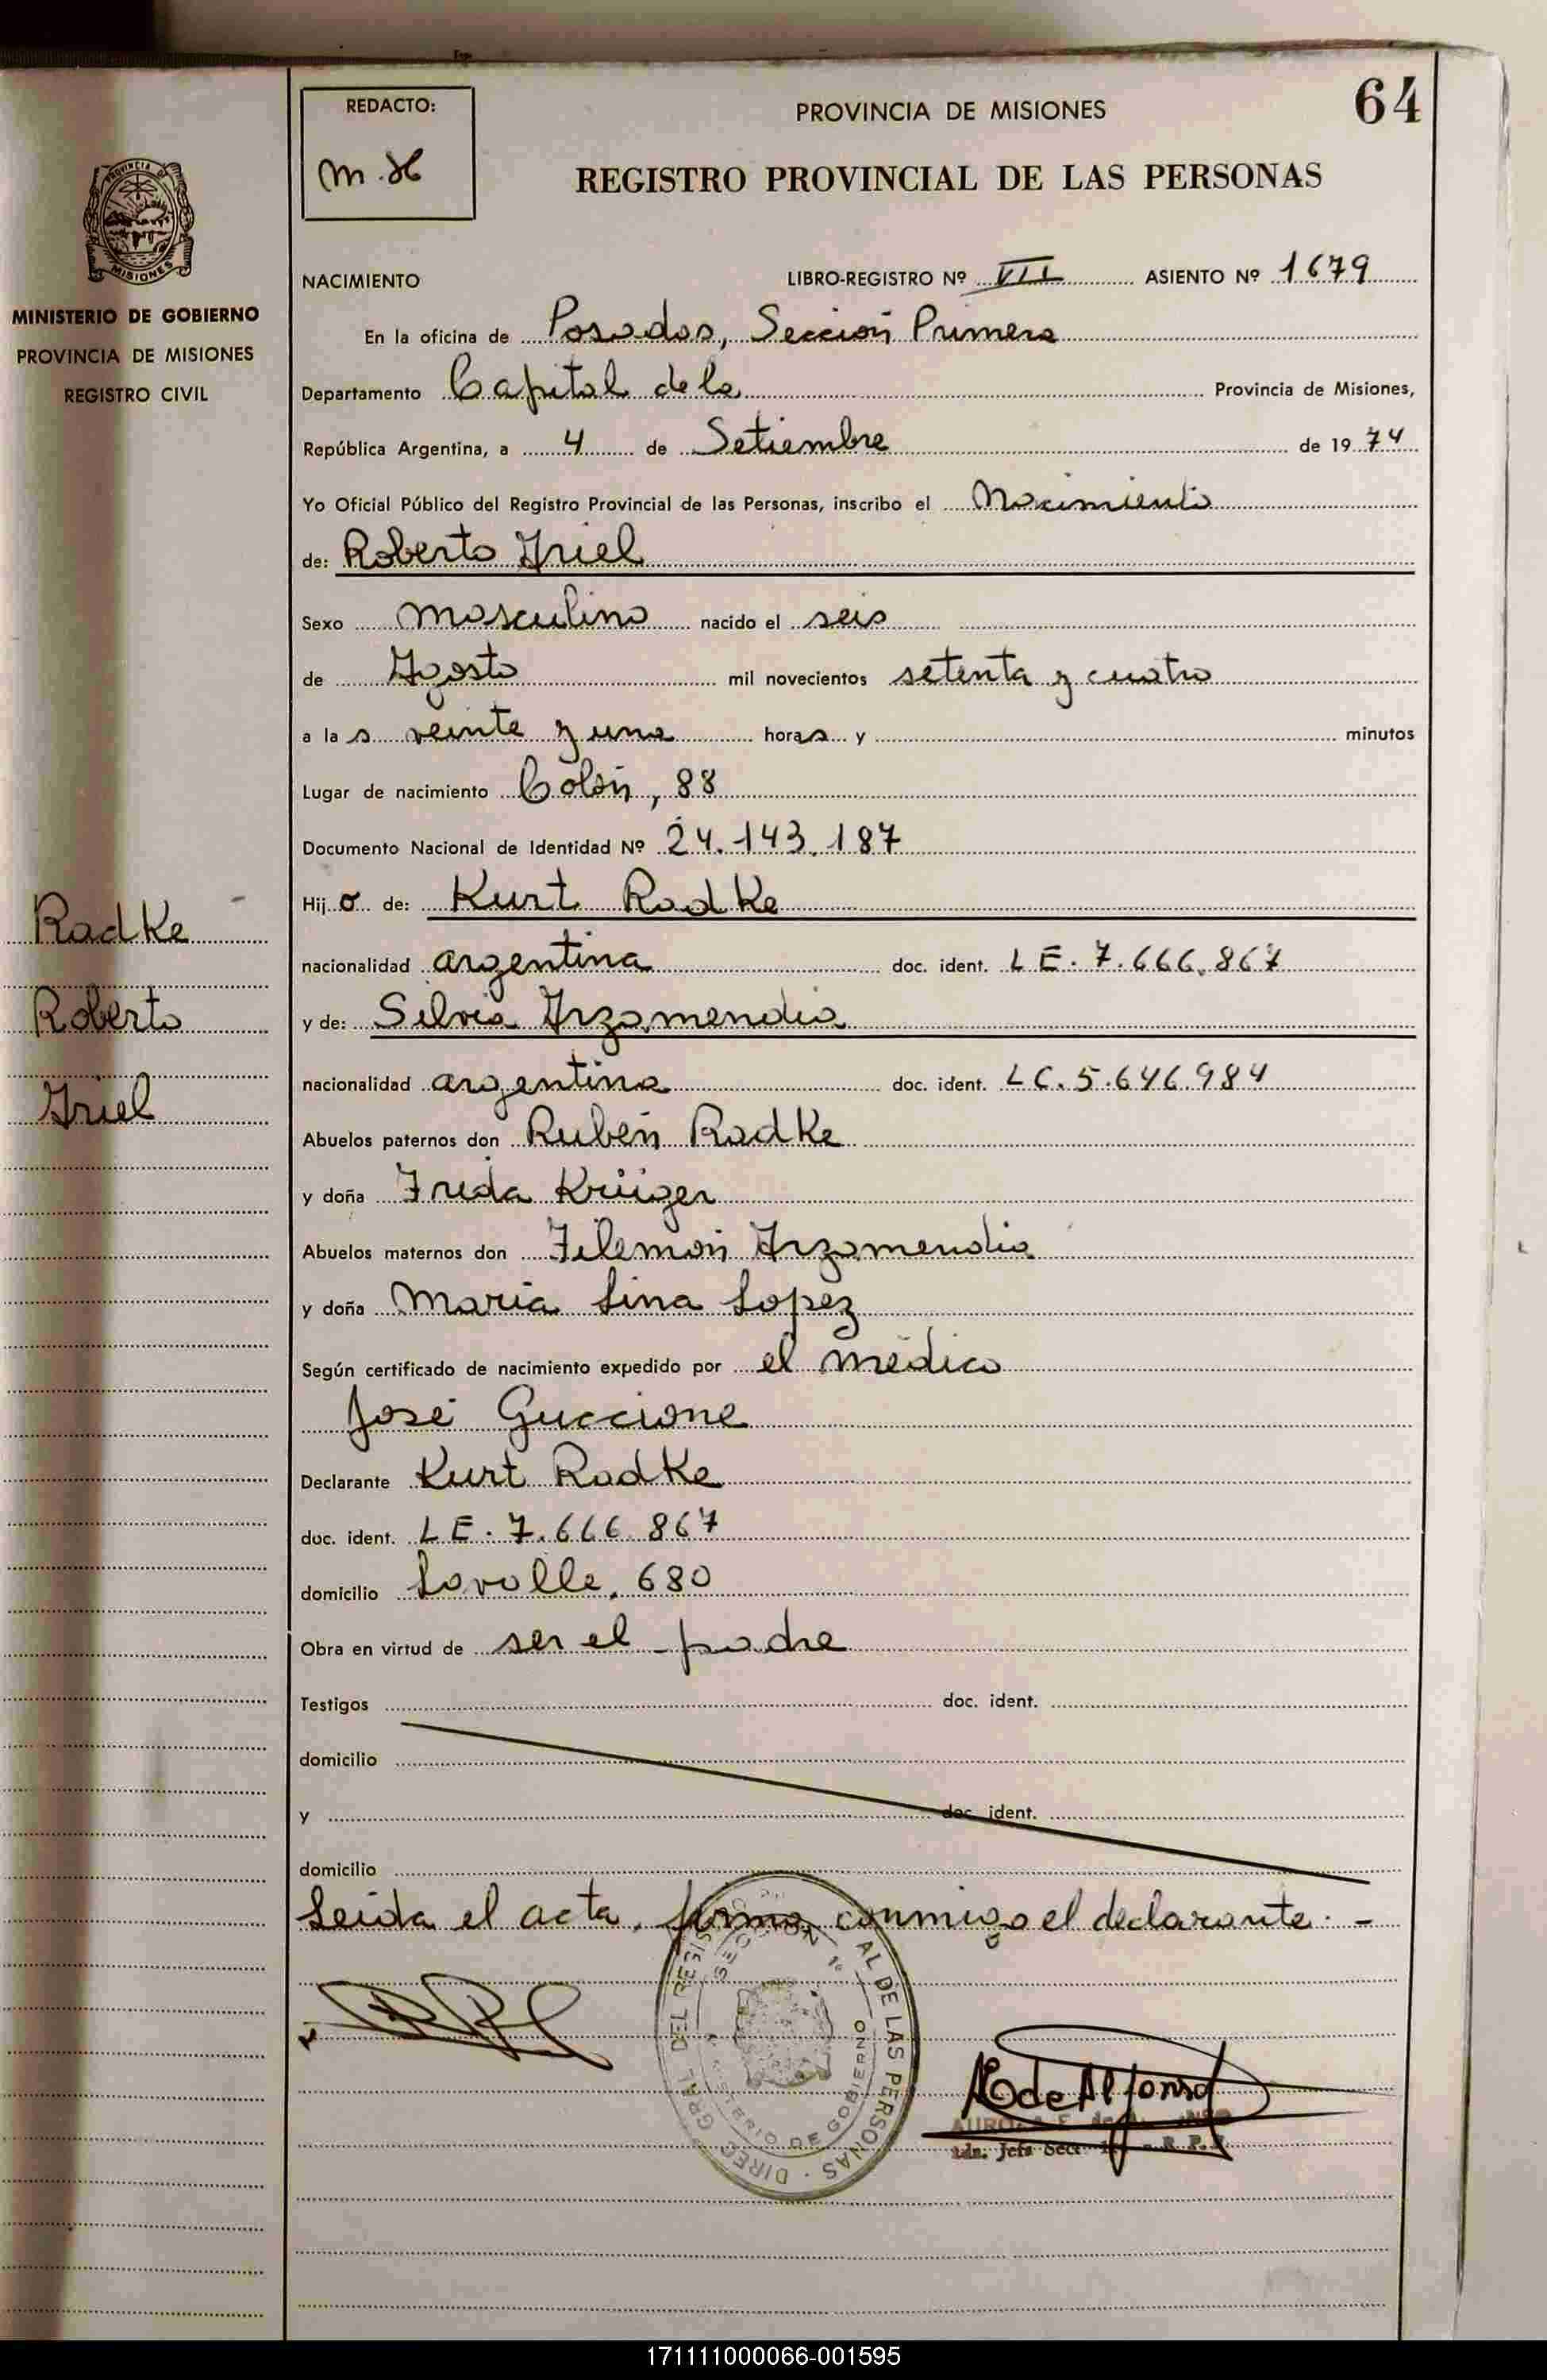 64
REDACTO:
PROVINCIA DE MISIONES
REGISTRO PROVINCIAL DE LAS PERSONAS
PROVINCIA DE
MISIONES
MINISTERIO DE GOBIERNO
PROVINCIA DE MISIONES
REGISTRO CIVIL
NACIMIENTO LIBRO-REGISTRO Nº VII ASIENTO Nº 1679
En la oficina de Posadas, Sección Primera
Departamento Capital de la Provincia de Misiones,
República Argentina, a 4 de Setiembre de 1974
Yo Oficial Público del Registro Provincial de las Personas, inscribo el Nacimiento
de: Roberto Ariel
Sexo masculino nacido el seis
de Agosto mil novecientos setenta y cuatro
a las veinte y una horas y minutos
Lugar de nacimiento Colón, 88
Documento Nacional de Identidad Nº 24.143.187
Hijo de: Kurt Radke
nacionalidad argentina doc. ident. LE. 7.666.867
y de: Silvia Arzamendia
nacionalidad argentina doc. ident. LC. 5.646.984
Abuelos paternos don Rubén Radke
y doña Freda Krüiger
Abuelos maternos don Filemón Arzamendia
y doña Maria Lina Lopez
Según certificado de nacimiento expedido por el médico
José Guccione
Declarante Kurt Radke
doc. ident. LE. 7.666.867
domicilio Lavalle, 680
Obra en virtud de ser el padre
Testigos doc. ident.
domicilio
y doc. ident.
domicilio
Leida el acta, firma conmigo el declarante. -
Radke
Roberto
Ariel
DIREC. GRAL. DEL REGIS AL DE LAS PERSONAS
SECCION 1ª
MINISTERIO DE GOBIERNO
de Alfonso
Jefa Secc. R. P. P.
171111000066-001595